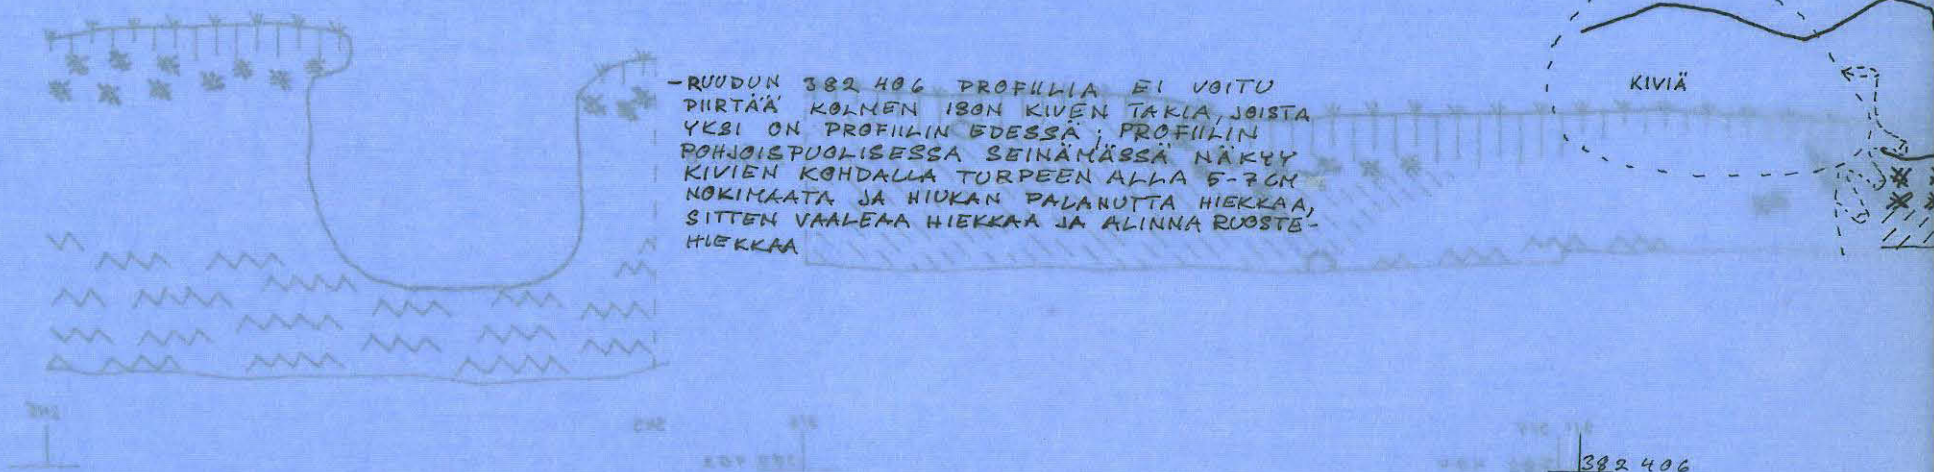 -RUUDUN 382 406 PROFIILIA EI VOITU
PIIRTÄÄ KOLMEN ISON KIVEN TAKIA, JOISTA
YKSI ON PROFIILIN EDESSÄ; PROFIILIN
POHJOISPUOLISESSA SEINÄMÄSSÄ NÄKYY
KIVIEN KOHDALLA TURPEEN ALLA 5-7 CM
NOKIMAATA JA HIUKAN PALANUTTA HIEKKAA,
SITTEN VAALEAA HIEKKAA JA ALINNA RUOSTE-
HIEKKAA
KIVIÄ
382 406